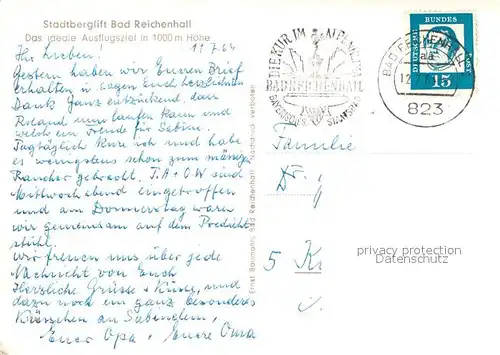 Stadtberglift Bad Reichenhall
Das ideale Ausflugsziel in 1000 m Höhe
11.7.64
Ihr Lieben!
Gestern haben wir Euren Brief
erhalten u sagen Euch herzlichen
Dank. Ganz entzückend, dan
Roland nun laufen kann und
welch eine Freude für Sabine.
Tagtäglich kure ich und habe
es wenigstens schon zum mäßigen
Raucher gebracht. T.A + O.W sind
Mittwoch abend eingetroffen
und am Donnerstag waren
wir gemeinsam auf dem Predigt-
stuhl.
Wir freuen uns über jede
Nachricht von Euch
Herzliche Grüsse + Küsse, und
dazu noch ein ganz besonderes
Küsschen an Sabinchen,
Euer Opa, Eure Oma
Ernst Baumann, Bad Reichenhall · Nachdruck verboten
DIE KUR IM ALPENKLIMA
BAD REICHENHALL
BAYERISCHES STAATSBAD
BAD REICHENHALL
823
DEUTSCHE BUNDESPOST
15
Familie
Dr.
5 K
privacy protection
Datenschutz